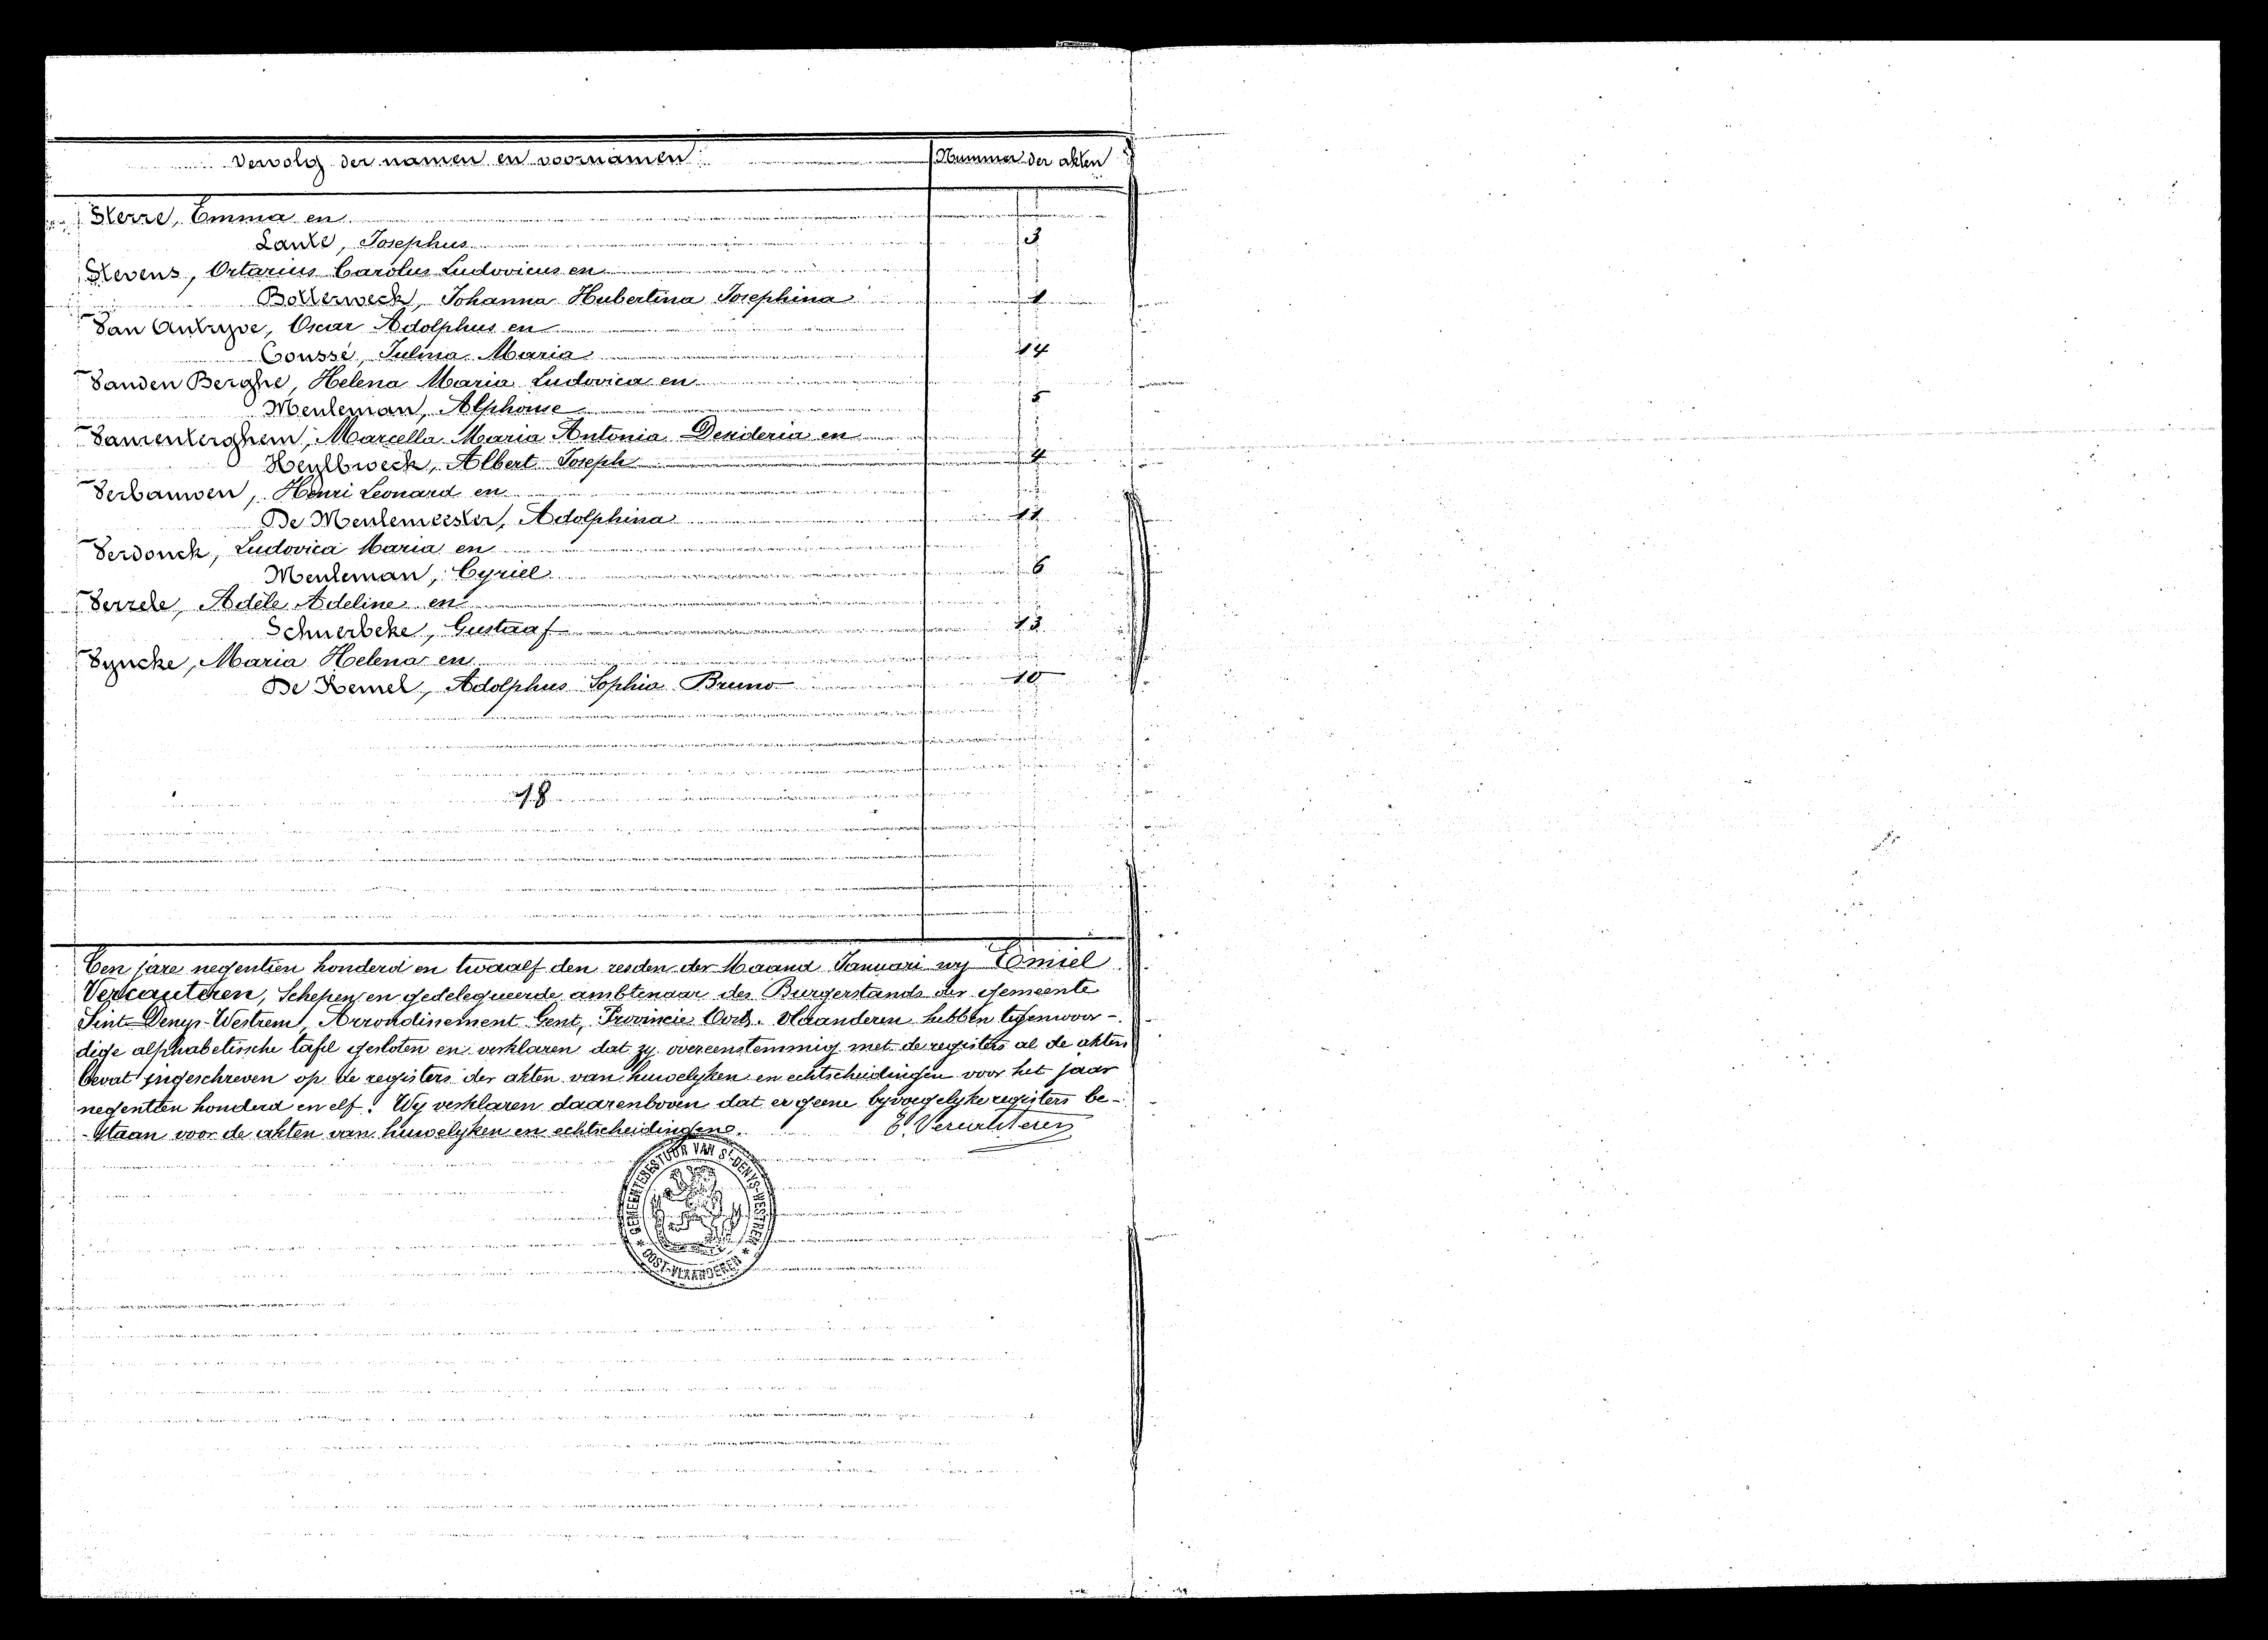 Vervolg der namen en voornamen
Nummer der akten
Sterre, Emma en
Lante, Josephus 3
Stevens, Octarius Carolus Ludovicus en
Bollerweck, Johanna Hubertina Josephina 1
Van Autryve, Oscar Adolphus en
Coussé, Julma Maria 14
Vanden Berghe, Helena Maria Ludovica en
Meuleman, Alphonse 5
Maria Antonia Desideria en
Albert Joseph 4
Verbauwen, Henri Leonard en
De Meulemeester, Adolphina 11
Verdonck, Ludovica Maria en
Meuleman, Cyriel 6
Verrele, Adèle Adeline en
Schuerbeke, Gustaaf 13
Vyncke, Maria Helena en
De Kemel, Adolphus Sophia Bruno 10
18
Ten jare negentien honderd en twaalf den zesden der Maand Januari wy Emiel
Vercauteren, Schepen en gedelegueerde ambtenaar des Burgerstands der Gemeente
Sint-Denys-Westrem, Arrondissement Gent, Provincie Oost-Vlaanderen hebben tegenwoor-
dige alphabetische tafel gesloten en verklaren dat zy overeenstemmig met de registers al de akten
bevat ingeschreven op de registers der akten van huwelyken en echtscheidingen voor het jaar
negentien honderd en elf. Wy verklaren daarenboven dat er geene byvoegelyke registers be-
-staan voor de akten van huwelyken en echtscheidingen.
E. Vercauteren
GEMEENTEBESTUUR VAN ST-DENYS-WESTREM
* OOST-VLAANDEREN *